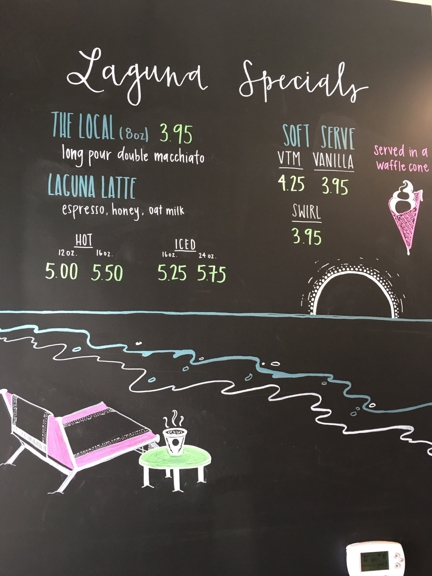 Laguna Specials
THE LOCAL (8oz) 3.95
long pour double macchiato
LAGUNA LATTE
espresso, honey, oat milk
HOT
12 oz. 16 oz.
5.00 5.50
ICED
16 oz. 24 oz.
5.25 5.75
SOFT SERVE
VTM VANILLA
4.25 3.95
SWIRL
3.95
Served in a
waffle cone